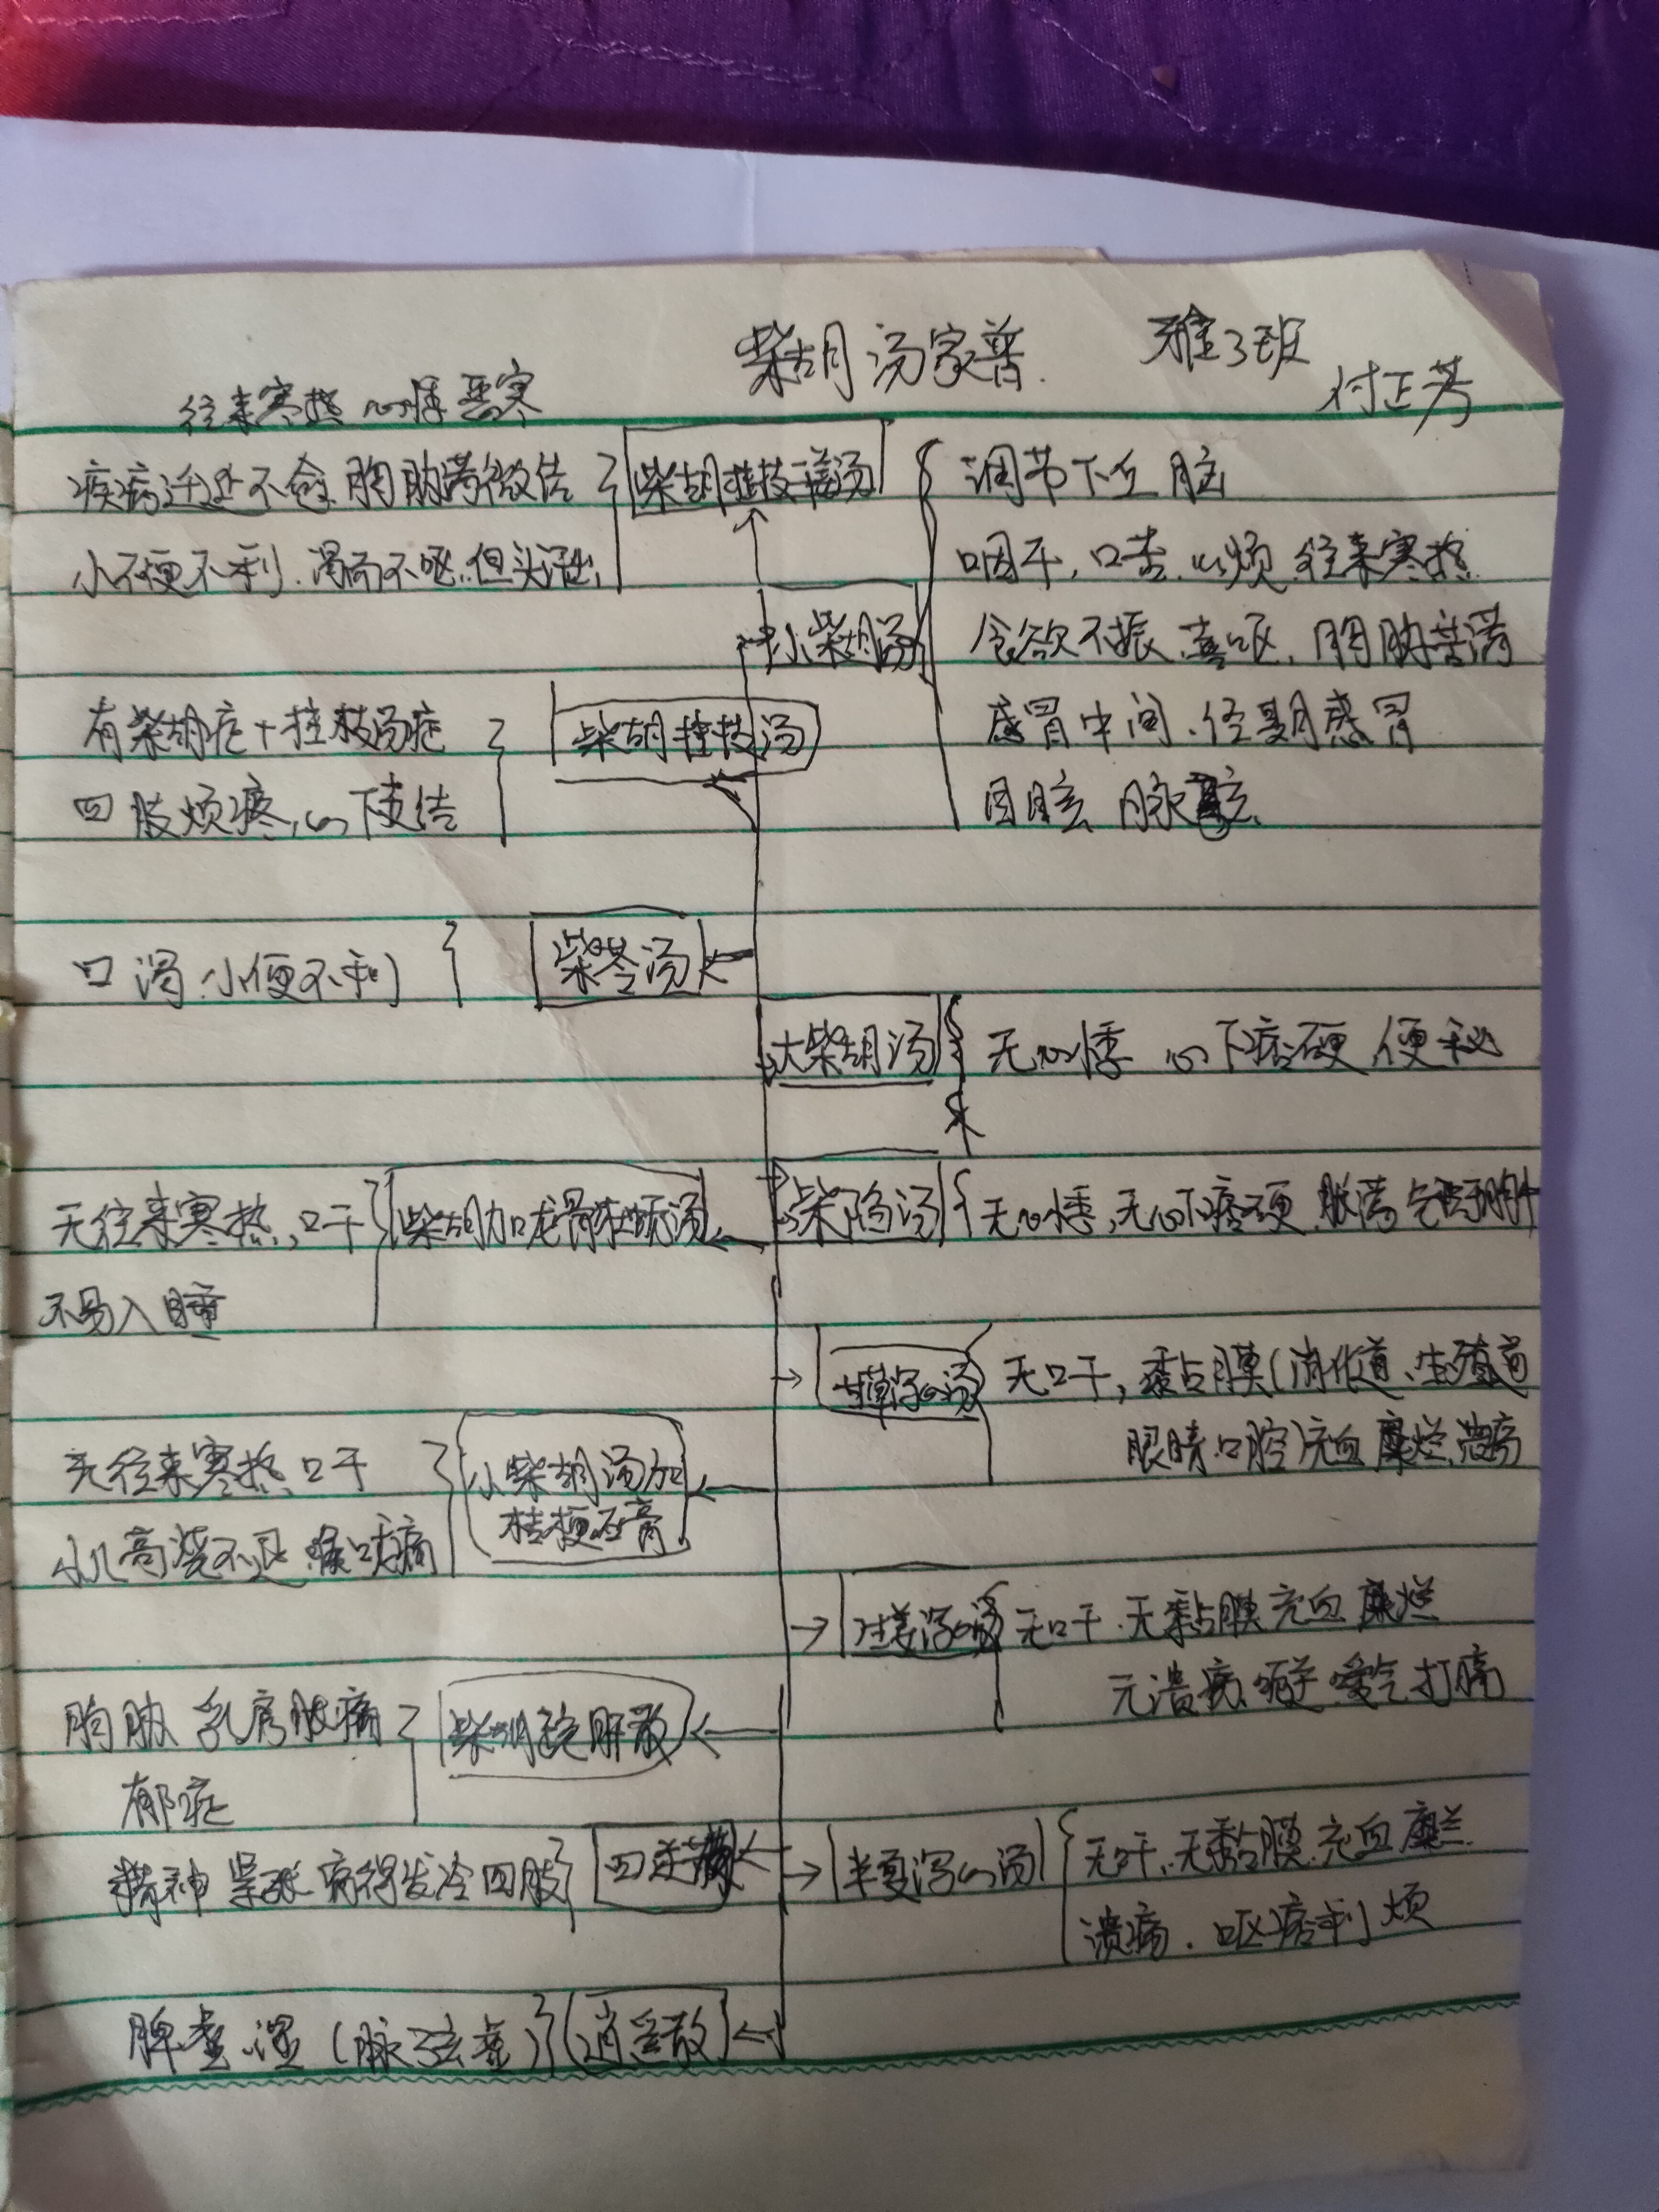 柴胡汤家普
雅3班
付正芳
往来寒热 心悸 恶寒
疾病迁延不愈 胸胁满微结
小便不利、渴而不呕、但头汗出
柴胡桂枝干姜汤
调节下丘脑
咽干，口苦、心烦、往来寒热
小柴胡汤
食欲不振、喜呕、胸胁苦满
有柴胡症+桂枝汤症
柴胡桂枝汤
感冒中间、经期感冒
四肢烦疼，心下支结
目眩 脉弦
口渴、小便不利
柴苓汤
大柴胡汤
无心悸 心下痞硬 便秘
无往来寒热，口干
柴胡加龙骨牡蛎汤
柴陷汤
无心悸，无心下痞硬 胀满
不易入睡
甘草泻心汤
无口干，黏膜(消化道、生殖道
眼睛 口腔)充血 糜烂 溃疡
无往来寒热 口干
小柴胡汤加
桔梗石膏
小儿高烧不退 喉咙痛
生姜泻心汤
无口干、无黏膜充血 糜烂
无溃疡 嗳气 打嗝
胸胁 乳房胀痛
柴胡疏肝散
郁症
精神紧张 病得发冷四肢
四逆散
半夏泻心汤
无口干、无黏膜充血糜烂
溃疡、呕痞利烦
脾虚 湿 (脉弦虚)
逍遥散